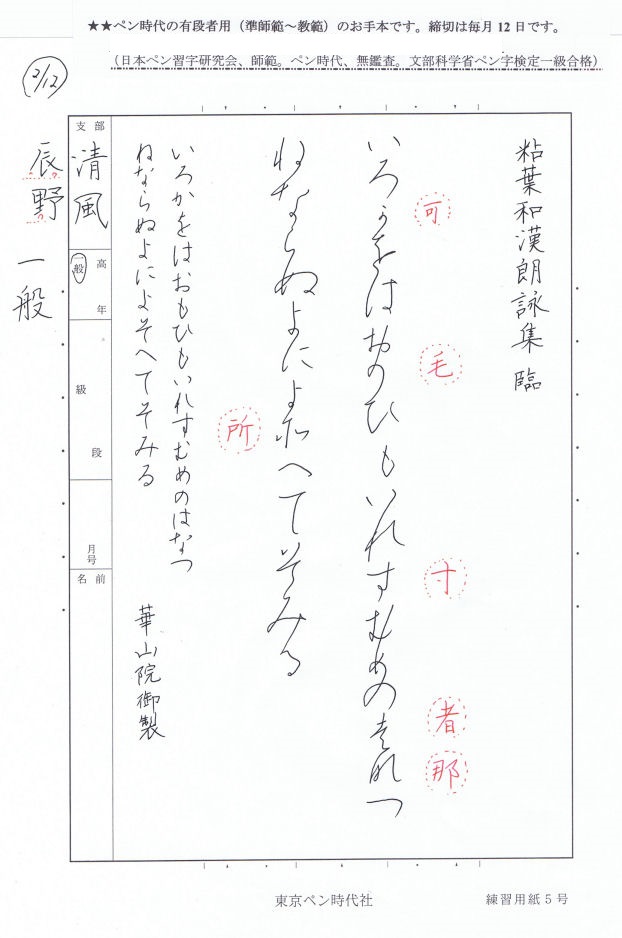 ★★ペン時代の有段者用（準師範～教範）のお手本です。締切は毎月12日です。
（日本ペン習字研究会、師範。ペン時代、無鑑査。文部科学省ペン字検定一級合格）
粘葉和漢朗詠集 臨
いろ可をはおもひもいれすむめの者那つ
可
毛
寸
者
那
ねならぬよによ所へてそみる
所
いろかをはおもひもいれすむめのはなつ
ねならぬよによそへてそみる
華山院御製
支部
清風
一般
高年
級
段
月号
名前
2/12
辰野 一般
東京ペン時代社
練習用紙5号